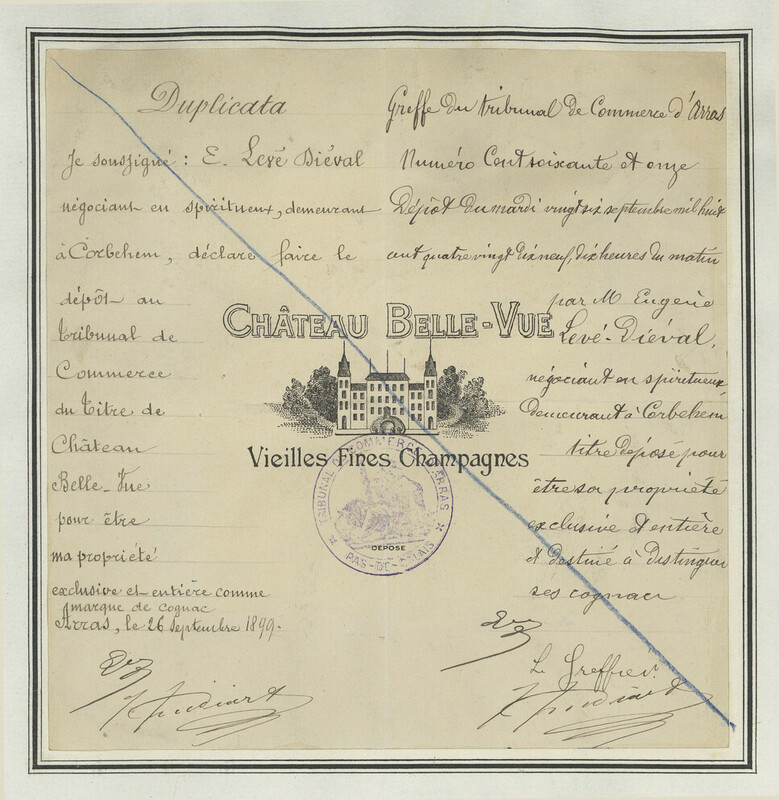 Duplicata
Je soussigné : E. Levé Diéval
négociant en spiritueux, demeurant
à Corbehem, déclare faire le
dépôt au
tribunal de
Commerce
du titre de
Château
Belle-Vue
pour être
ma propriété
exclusive et entière comme
marque de cognac
Arras, le 26 septembre 1899.
CHÂTEAU BELLE-VUE
VIEILLES FINES CHAMPAGNES
TRIBUNAL DE COMMERCE D'ARRAS
DÉPOSÉ
PAS-DE-CALAIS
Greffe du tribunal de Commerce d'Arras
Numéro Cent soixante et onze
Dépôt du mardi vingt six septembre mil huit
cent quatre vingt dix neuf, dix heures du matin
par M Eugène
Levé-Diéval,
négociant en spiritueux
demeurant à Corbehem
titre déposé pour
être sa propriété
exclusive et entière
et destiné à distinguer
ses cognacs
Le Greffier